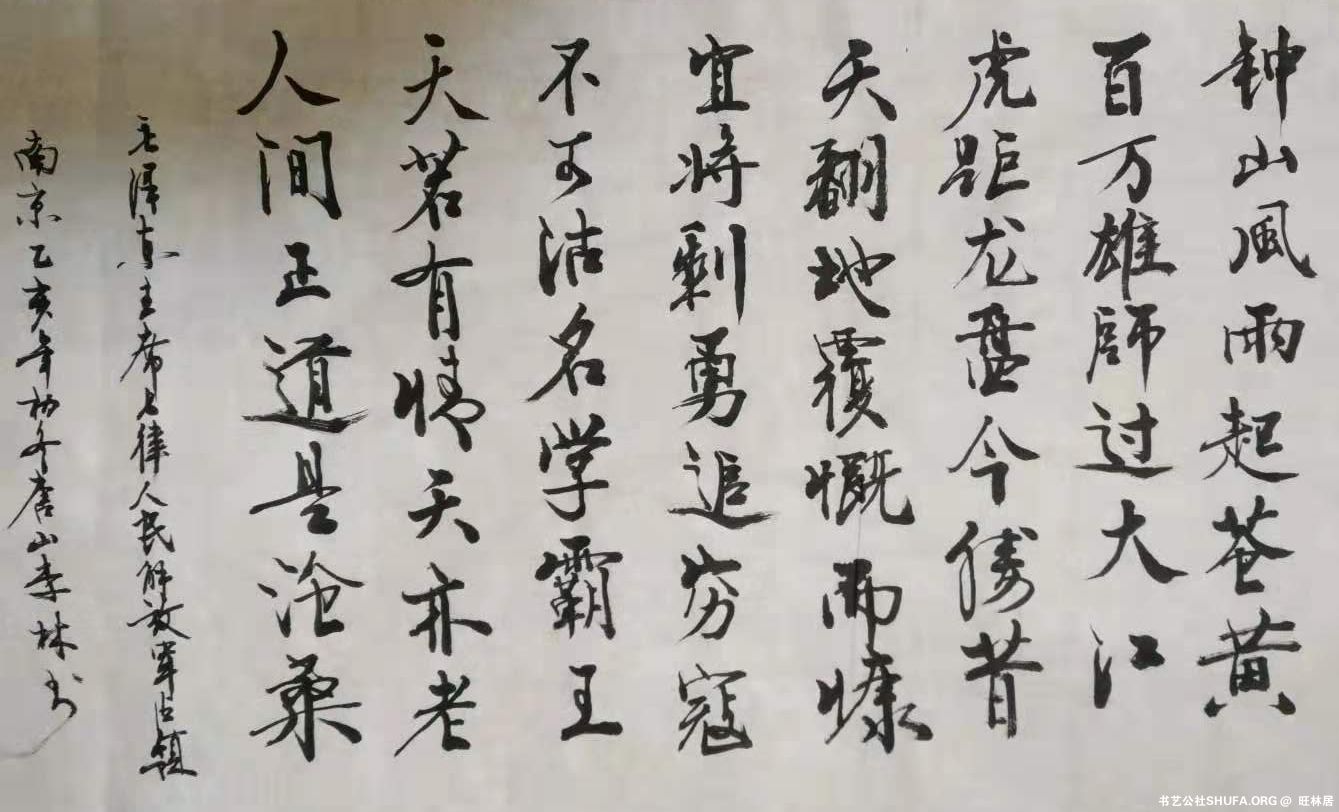 钟山風雨起苍黄
百万雄師过大江
虎距龙盘今勝昔
天翻地覆慨而慷
宜将剩勇追穷寇
不可沽名学霸王
天若有情天亦老
人间正道是沧桑
毛泽东主席七律人民解放军占領
南京乙亥年初冬唐山李林书
书艺公社SHUFA.ORG @ 旺林居